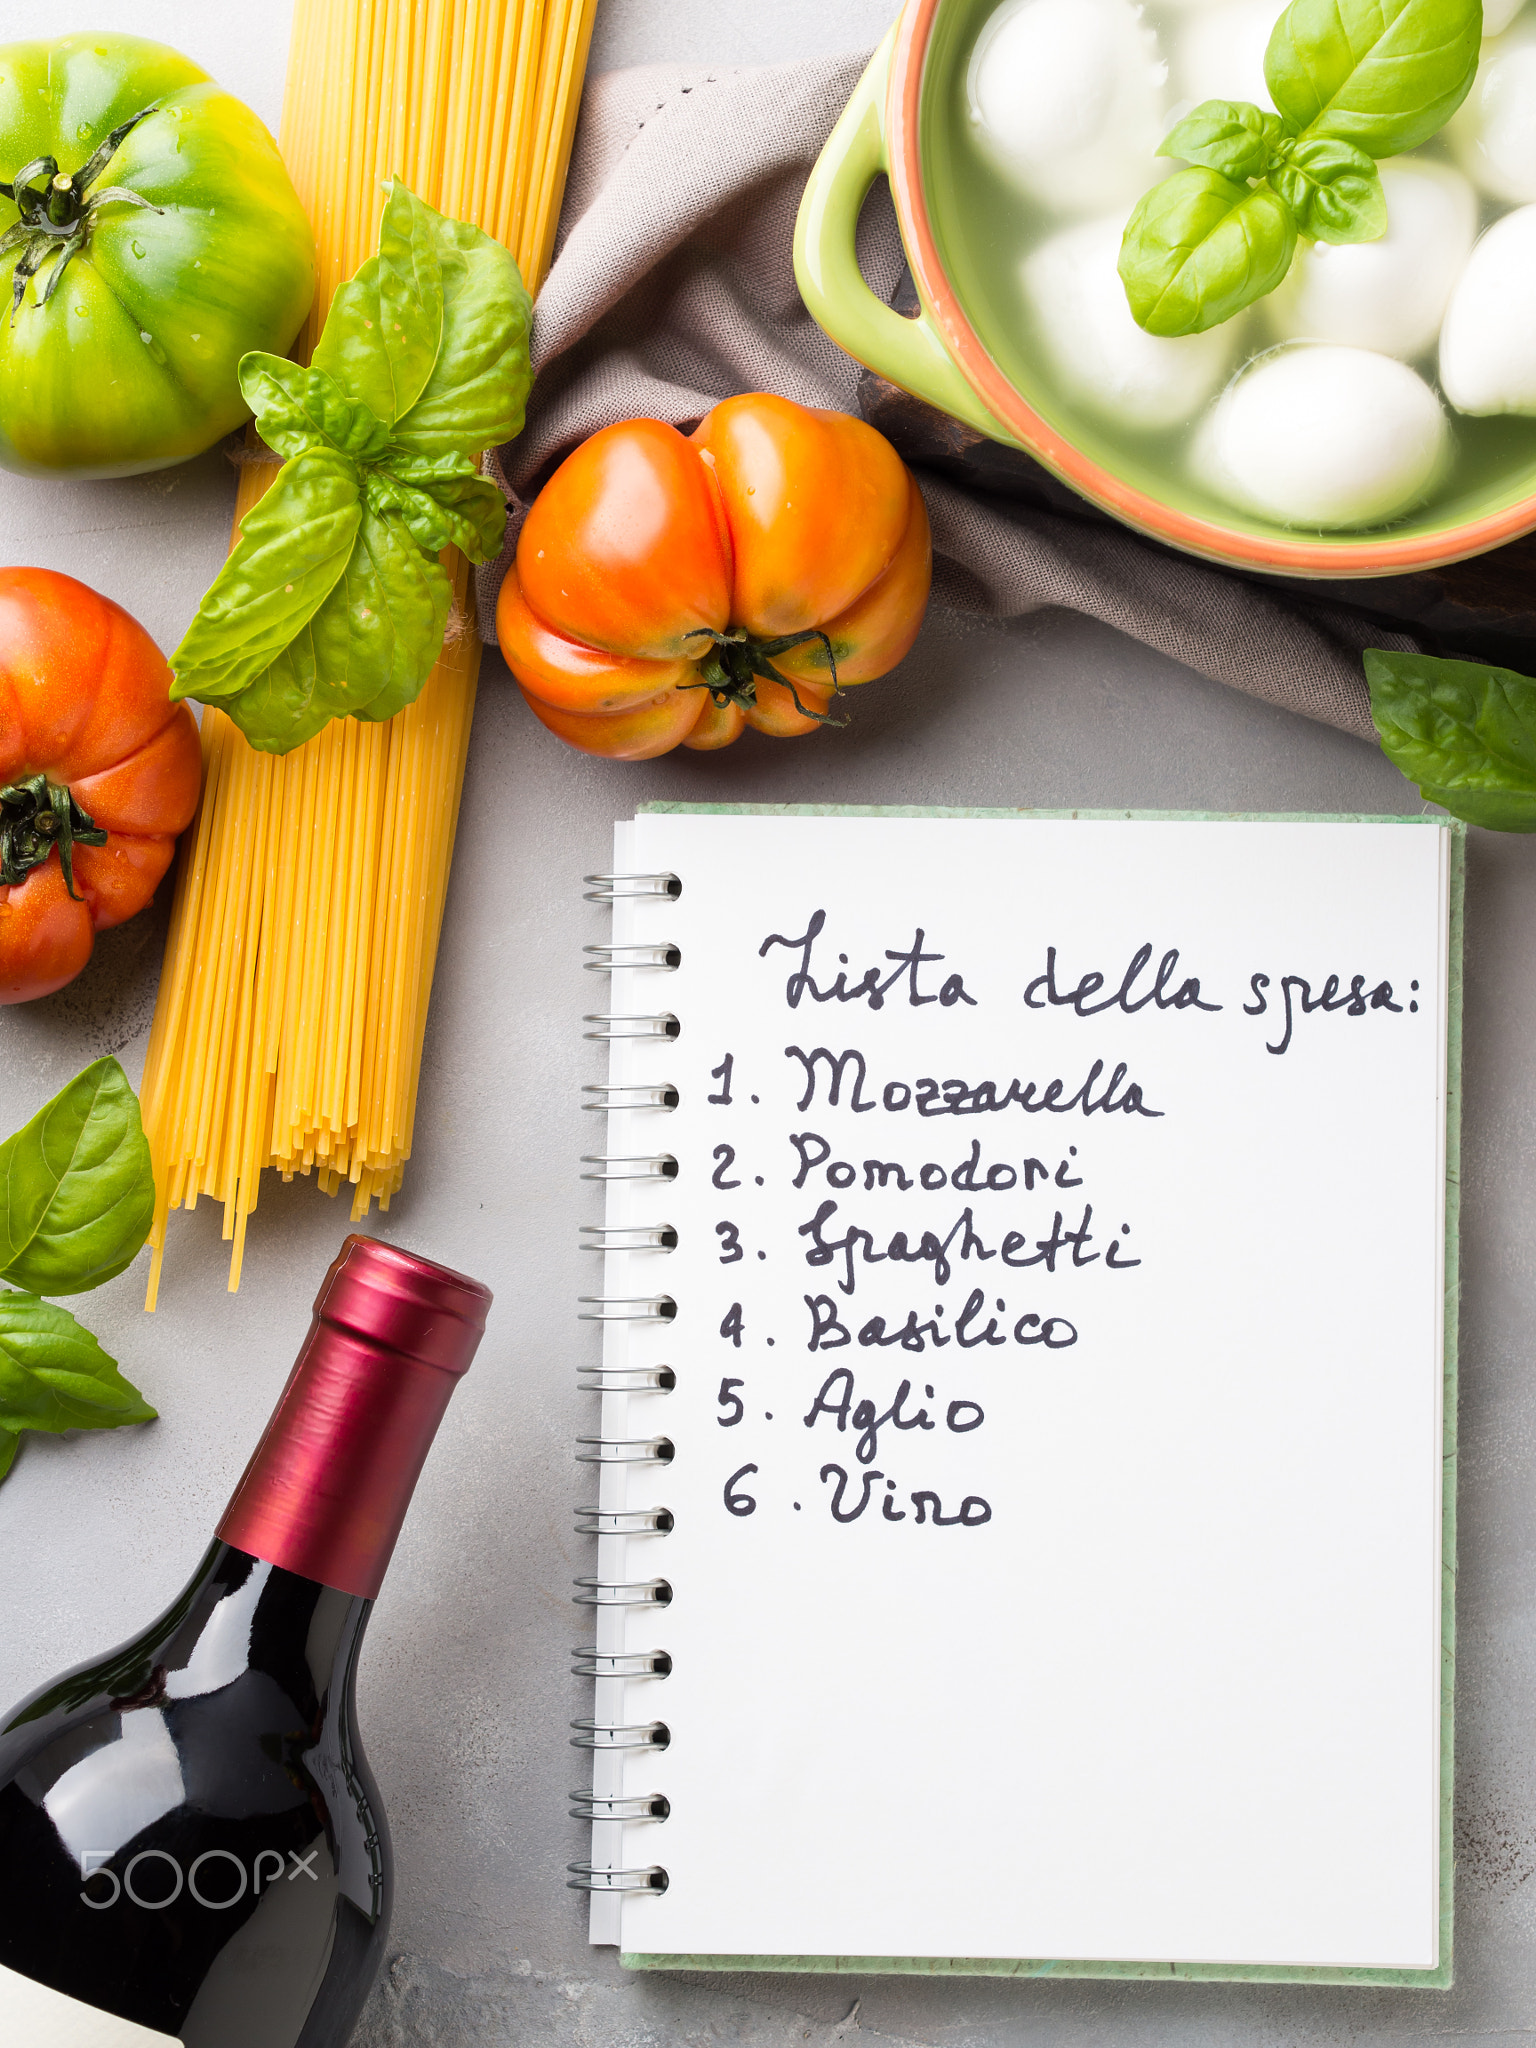 Lista della spesa:
1. Mozzarella
2. Pomodori
3. Spaghetti
4. Basilico
5. Aglio
6. Vino
500px